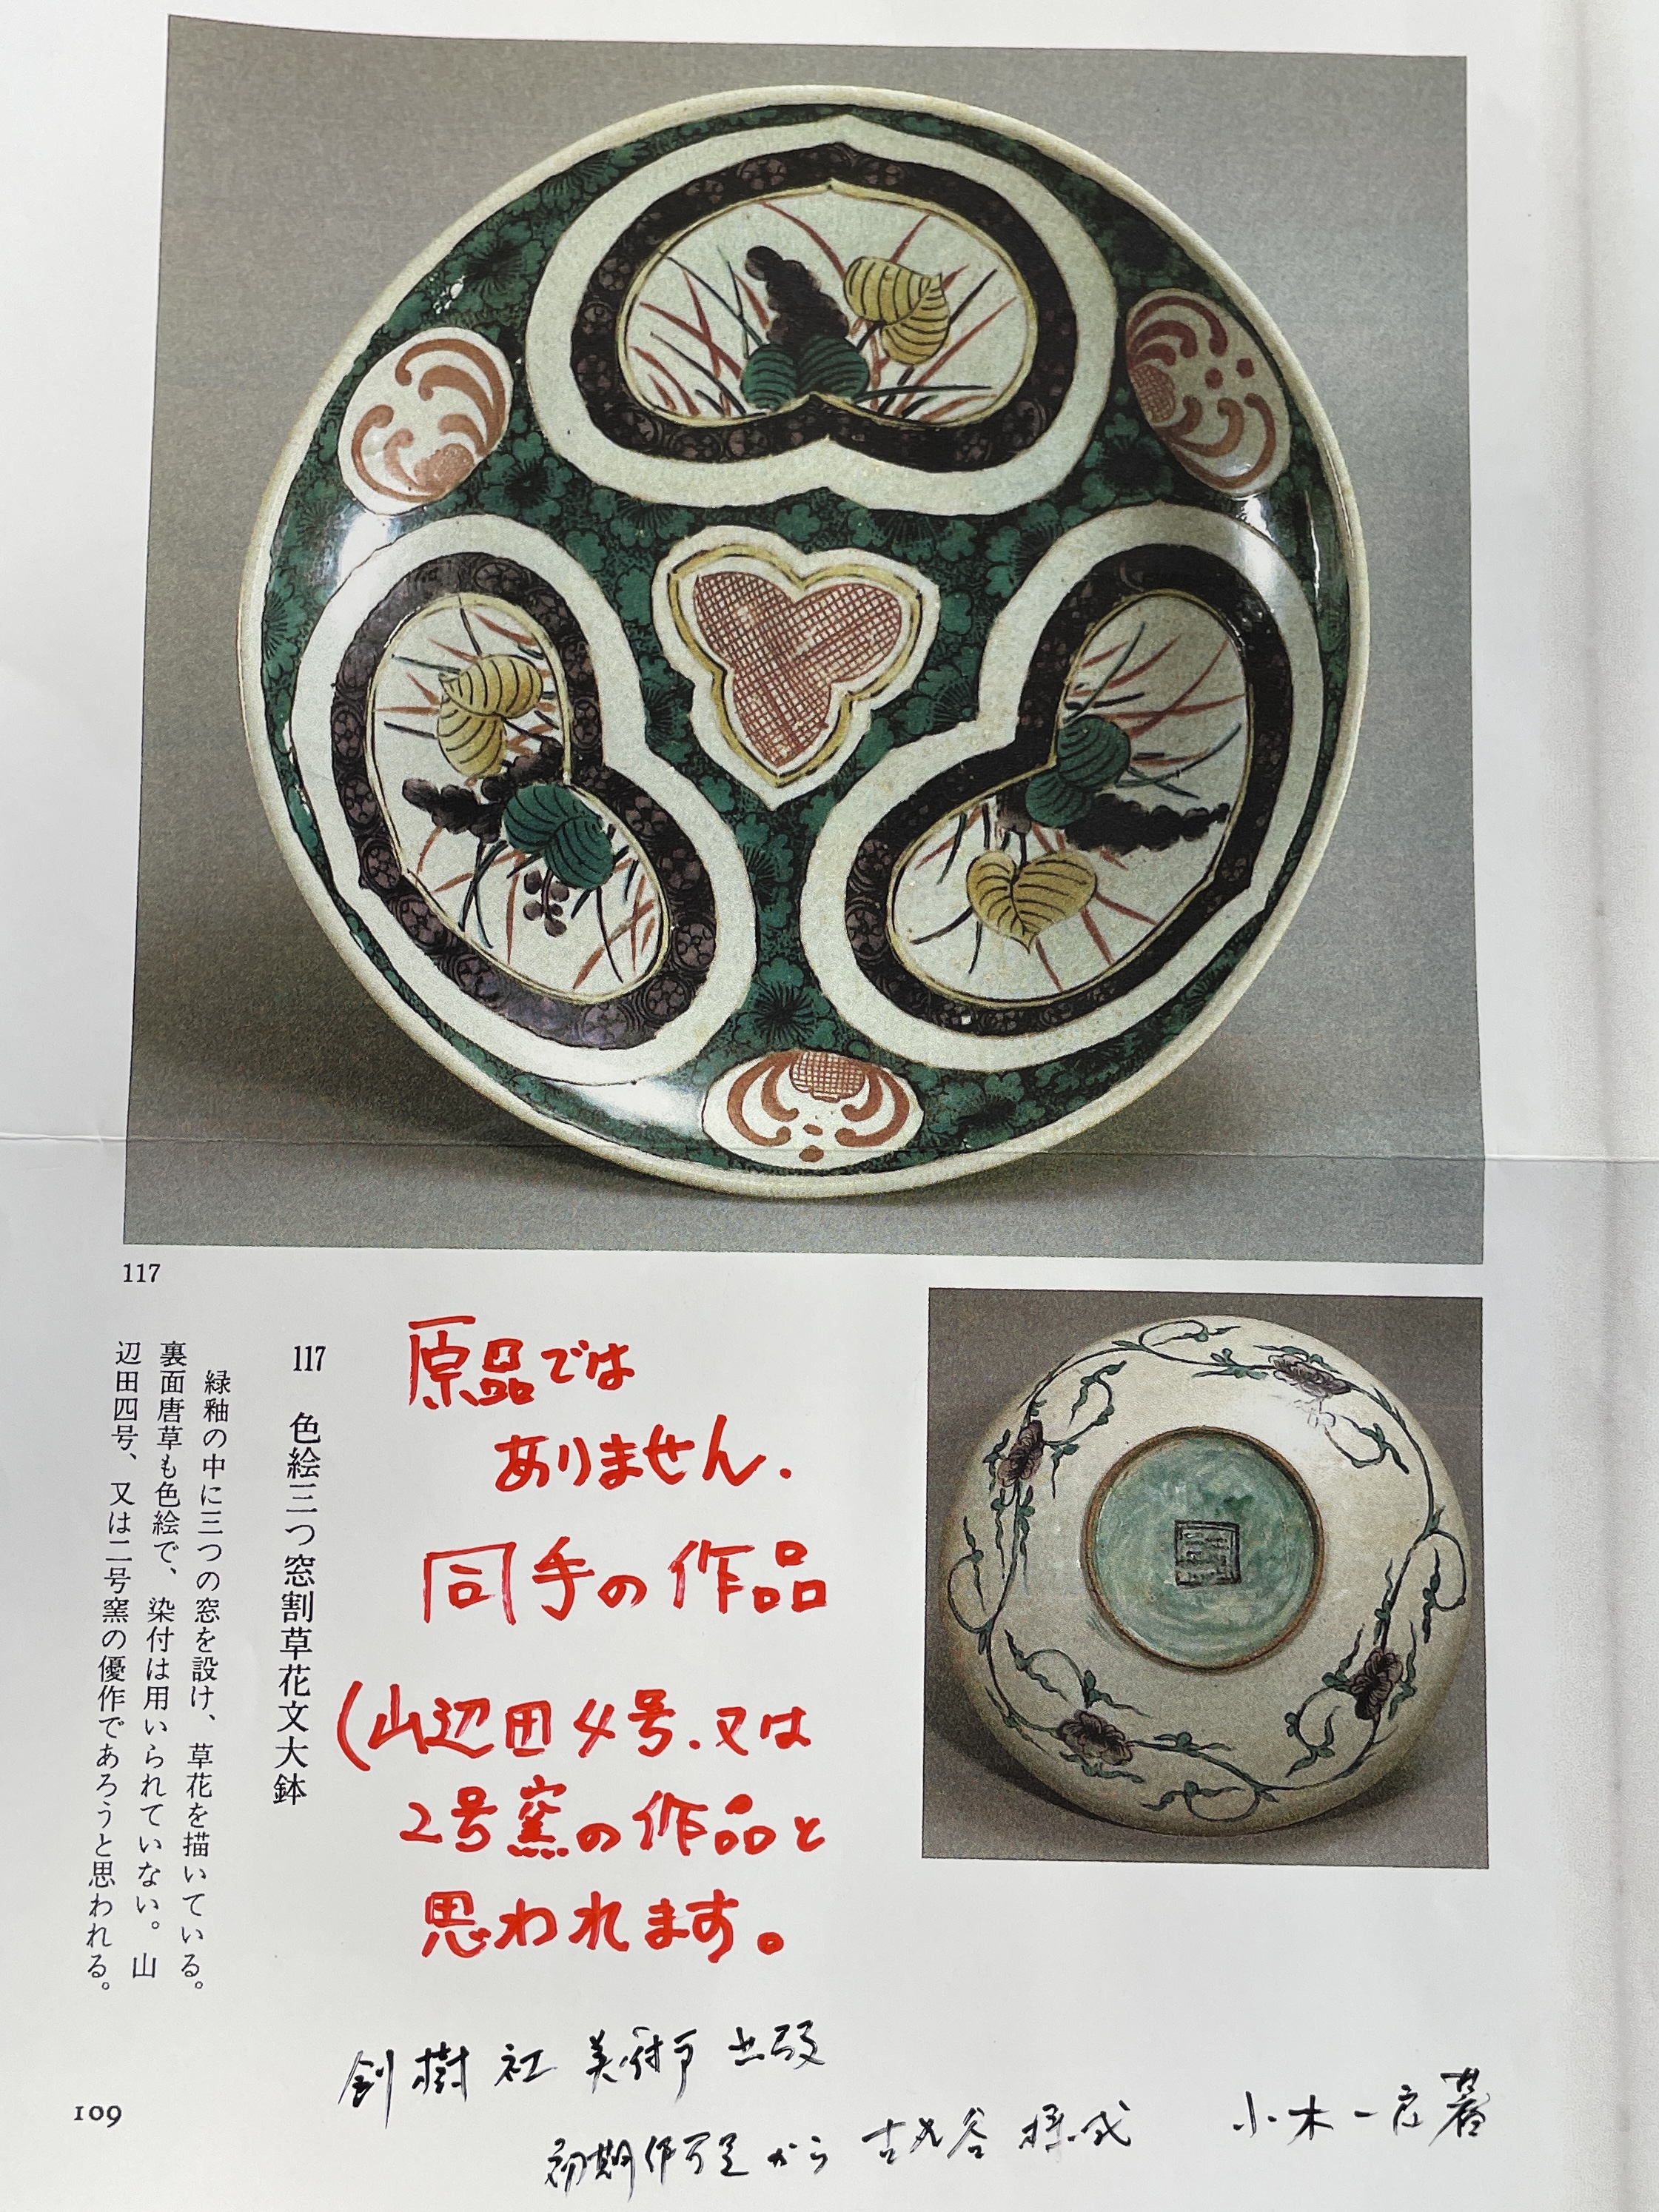 117
117 色絵三つ窓割草花文大鉢
緑釉の中に三つの窓を設け、草花を描いている。
裏面唐草も色絵で、染付は用いられていない。山
辺田四号、又は二号窯の優作であろうと思われる。
原品では
ありません.
同手の作品
(山辺田4号.又は
2号窯の作品と
思われます。
創樹社美術出版
初期伊万里から古九谷様式
小木一良著
109